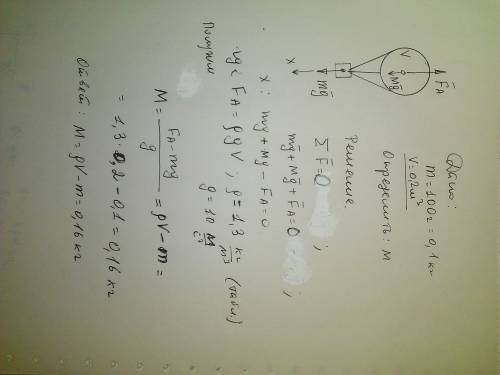 Дано:
m = 100г = 0,1 кг
V = 0,2 м³
Определить: М
F̄A
V
Mḡ
mḡ
x
Решение.
ΣF̄ = 0 ;
mḡ + Mḡ + F̄A = 0 ;
x: mg + Mg - FA = 0
где FA = ρgV, ρ = 1,3 кг/м³ (табл.)
g = 10 м/с²
Получим
M = (FA - mg)/g = ρV - m =
= 1,3 · 0,2 - 0,1 = 0,16 кг
Ответ: M = ρV - m = 0,16 кг